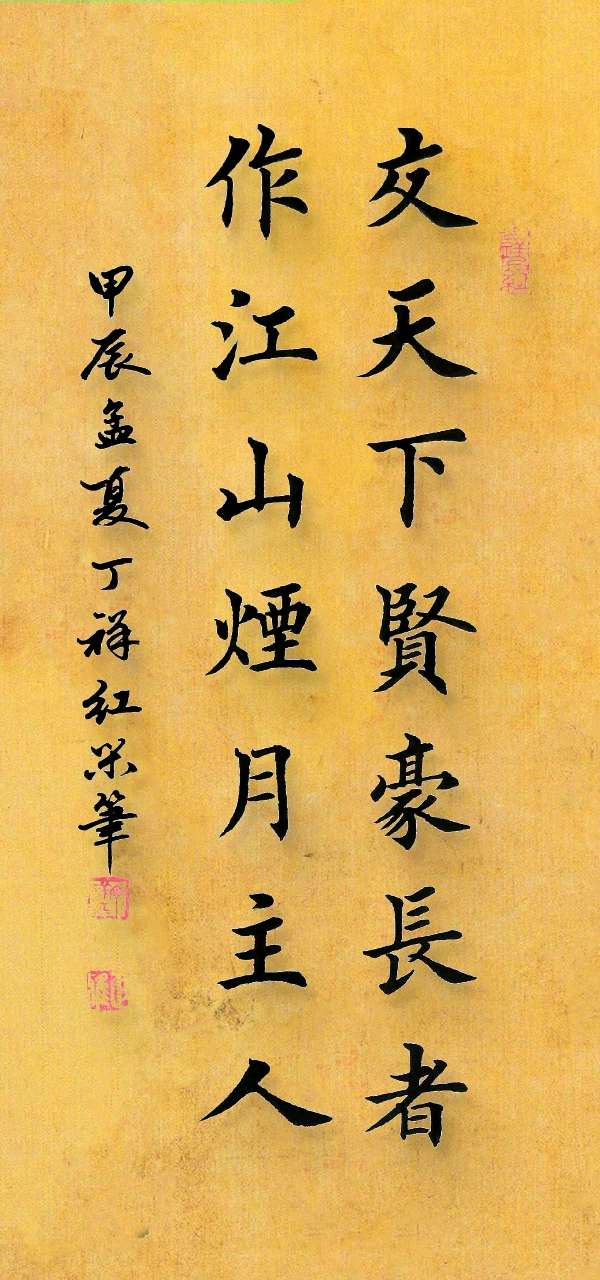 交天下賢豪長者
作江山煙月主人
甲辰孟夏丁祥红呆筆